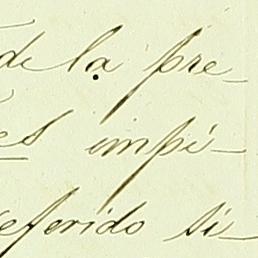 de la pre-
es impi-
eferido si-